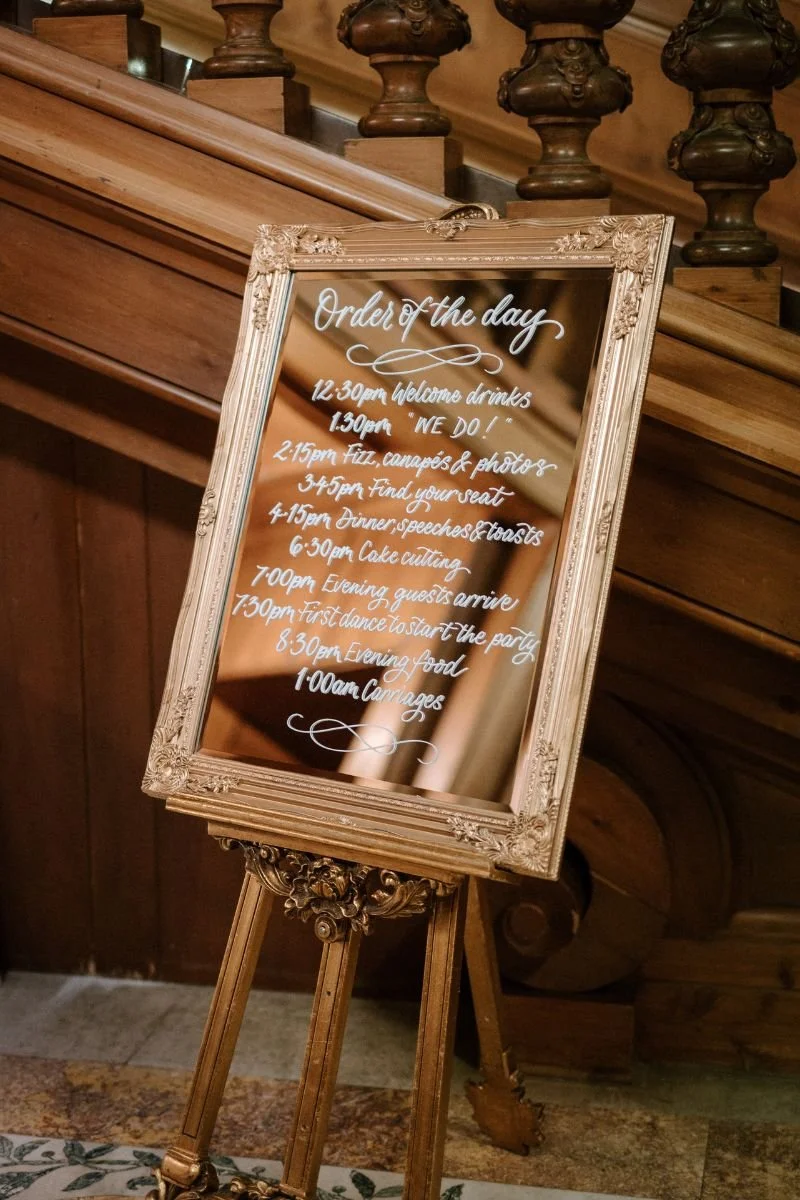 Order of the day
12·30pm Welcome drinks
1.30pm "WE DO!"
2·15pm Fizz, canapés & photos
3·45pm Find your seat
4·15pm Dinner, speeches & toasts
6·30pm Cake cutting
7·00pm Evening guests arrive
7·30pm First dance to start the party
8·30pm Evening food
1·00am Carriages